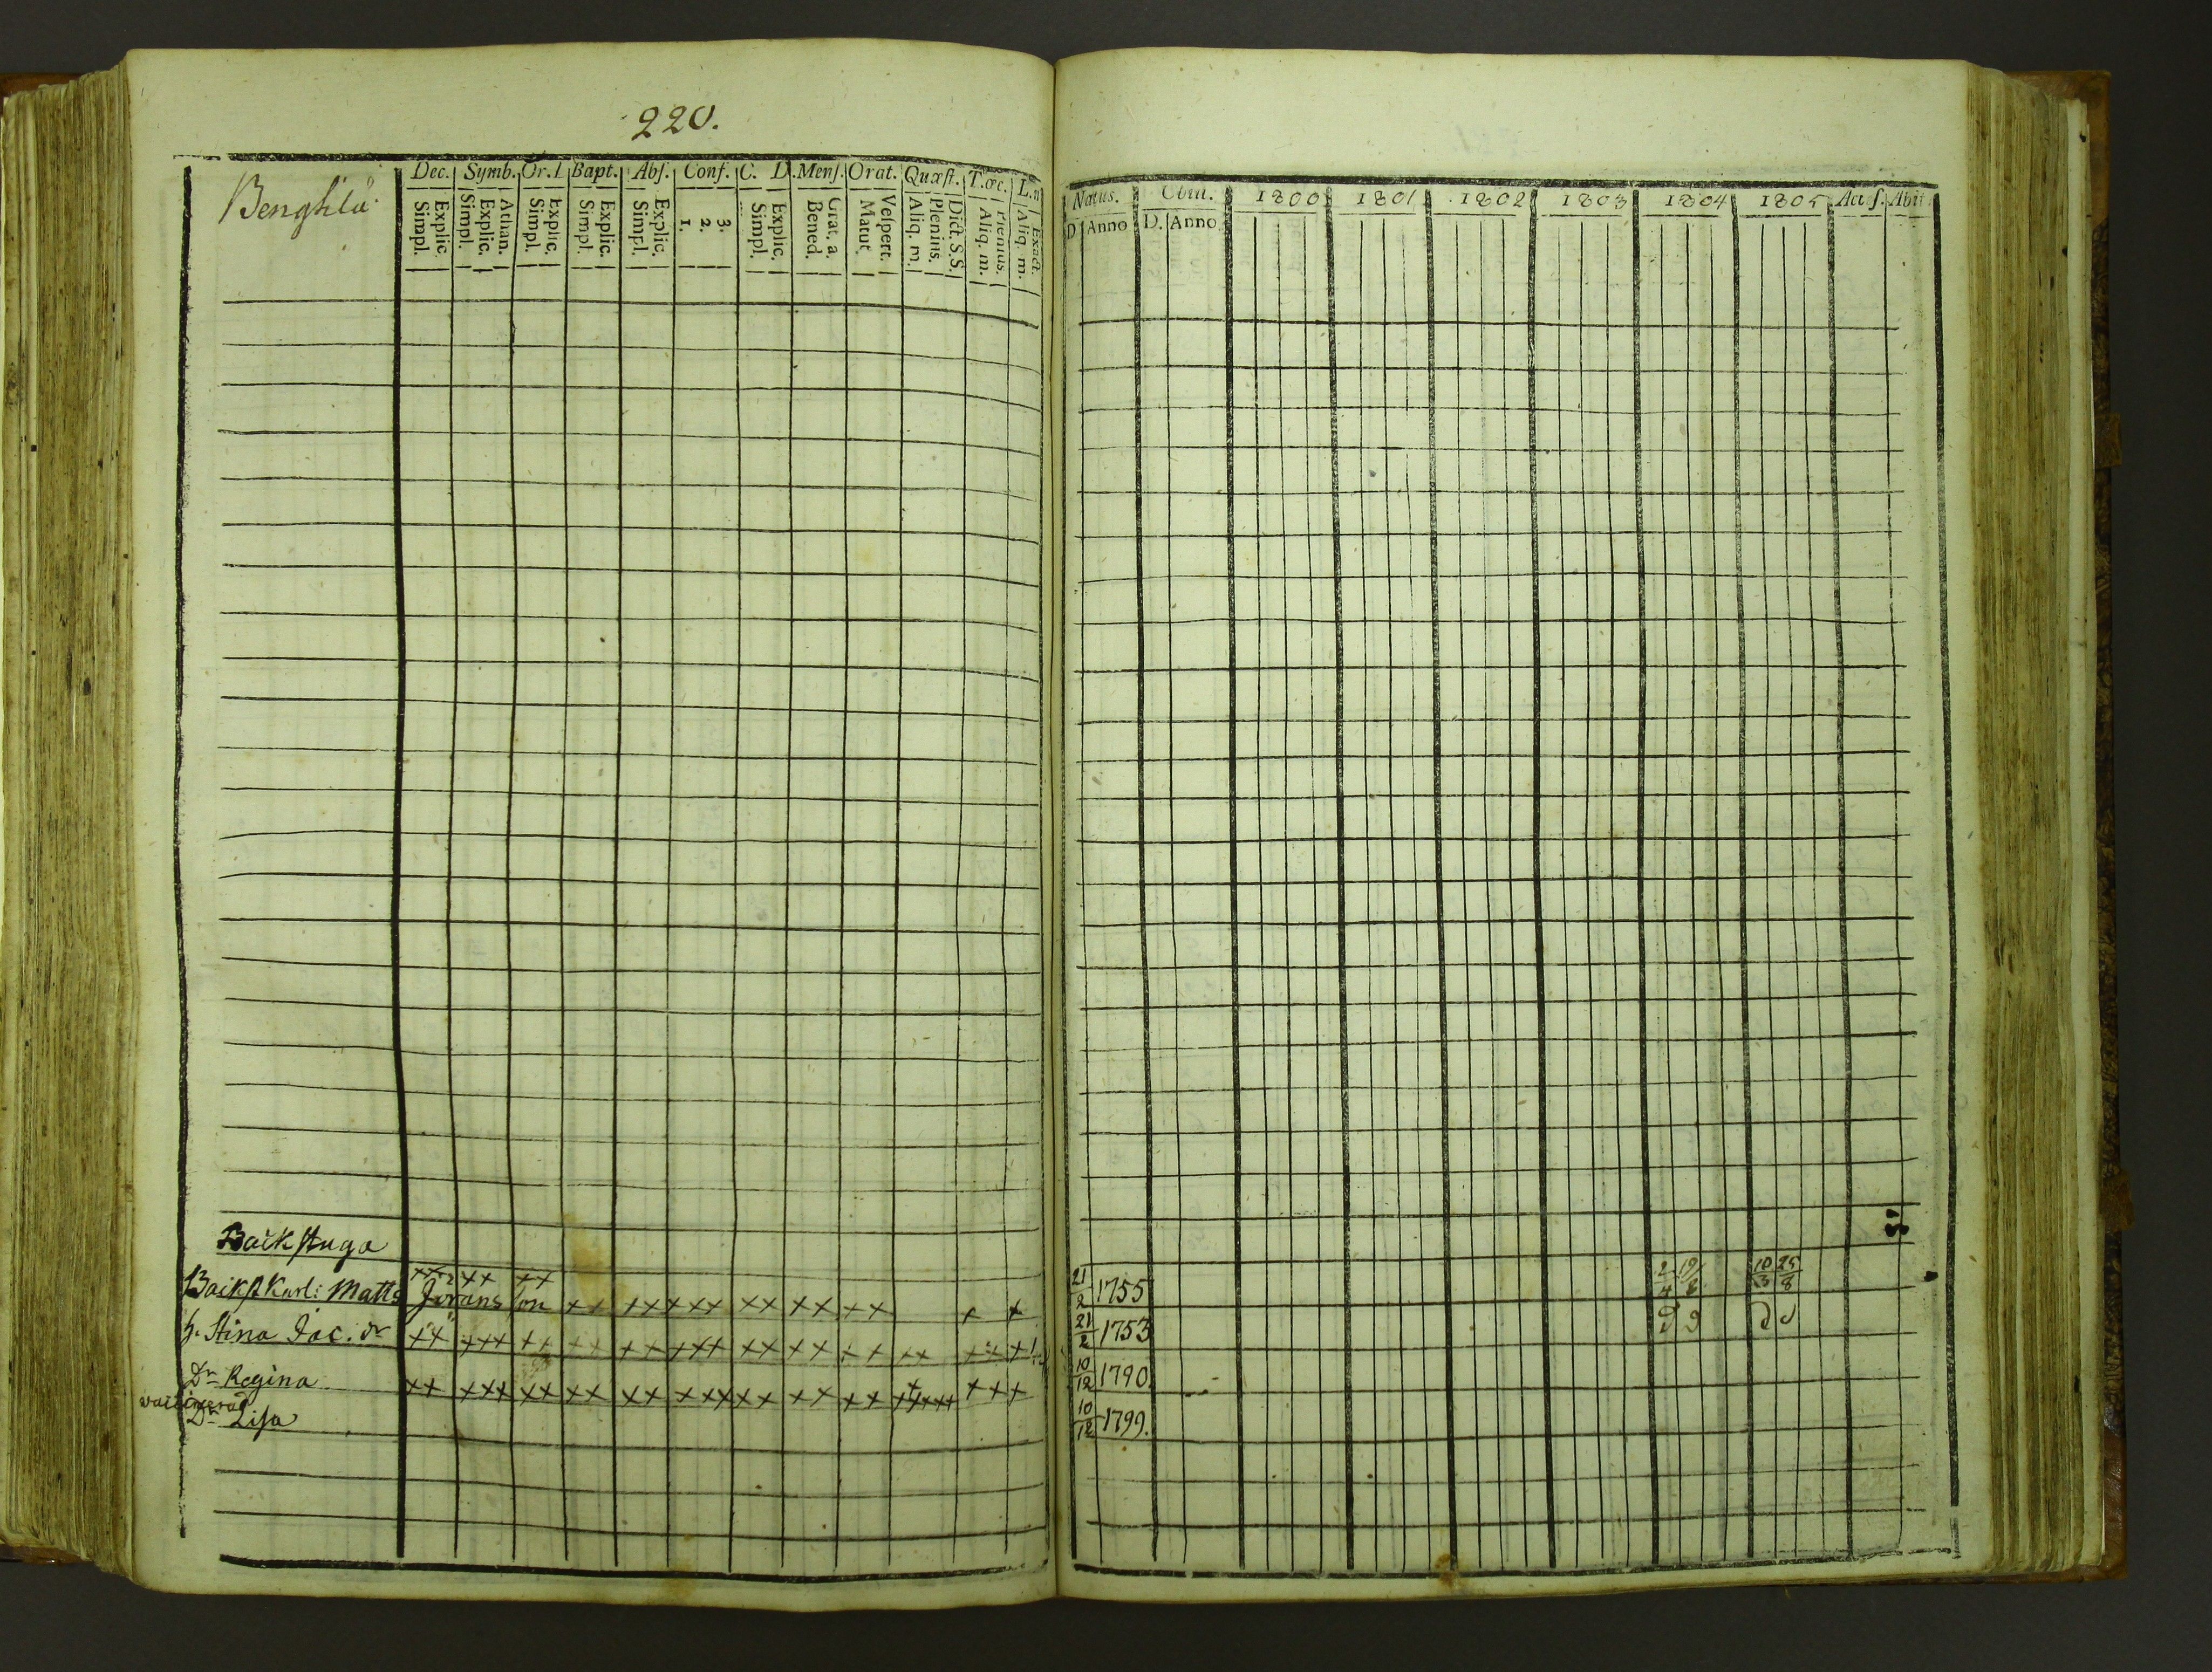 220.
Dec. Symb. Or. I Bapt. Abs. Conf. C. D. Mens. Orat. Quæst. T.œc. L.n
Explic. Simpl. Athan. Explic. Simpl. Explic. Simpl. Explic. Simpl. Explic. Simpl. 3. 2. 1. Explic. Simpl. Grat. a. Bened. Vespert. Matut. Dict. S.S. Plenius. Aliq. m. Plenius. Aliq. m. Exact. Aliq. m.
Natus. Obiit. 1800 1801 1802 1803 1804 1805 Acc f. Abit
D. Anno D. Anno
Backstuga
Backst Karl: Matts Jörans son xx xx xx xx xxx xxx xx xx xx x x 21/2 1755 2/4 19/8 10/3 25/8
h. Stina Jac. dr xx xxx xx xx xx xxx xx xx xx xx xx x 21/2 1753 d d d d
Dr Regina xx xxx xx xx xx xxx xx xx xx xxxxx xx x 10/12 1790.
Dr Lisa 10/12 1799.